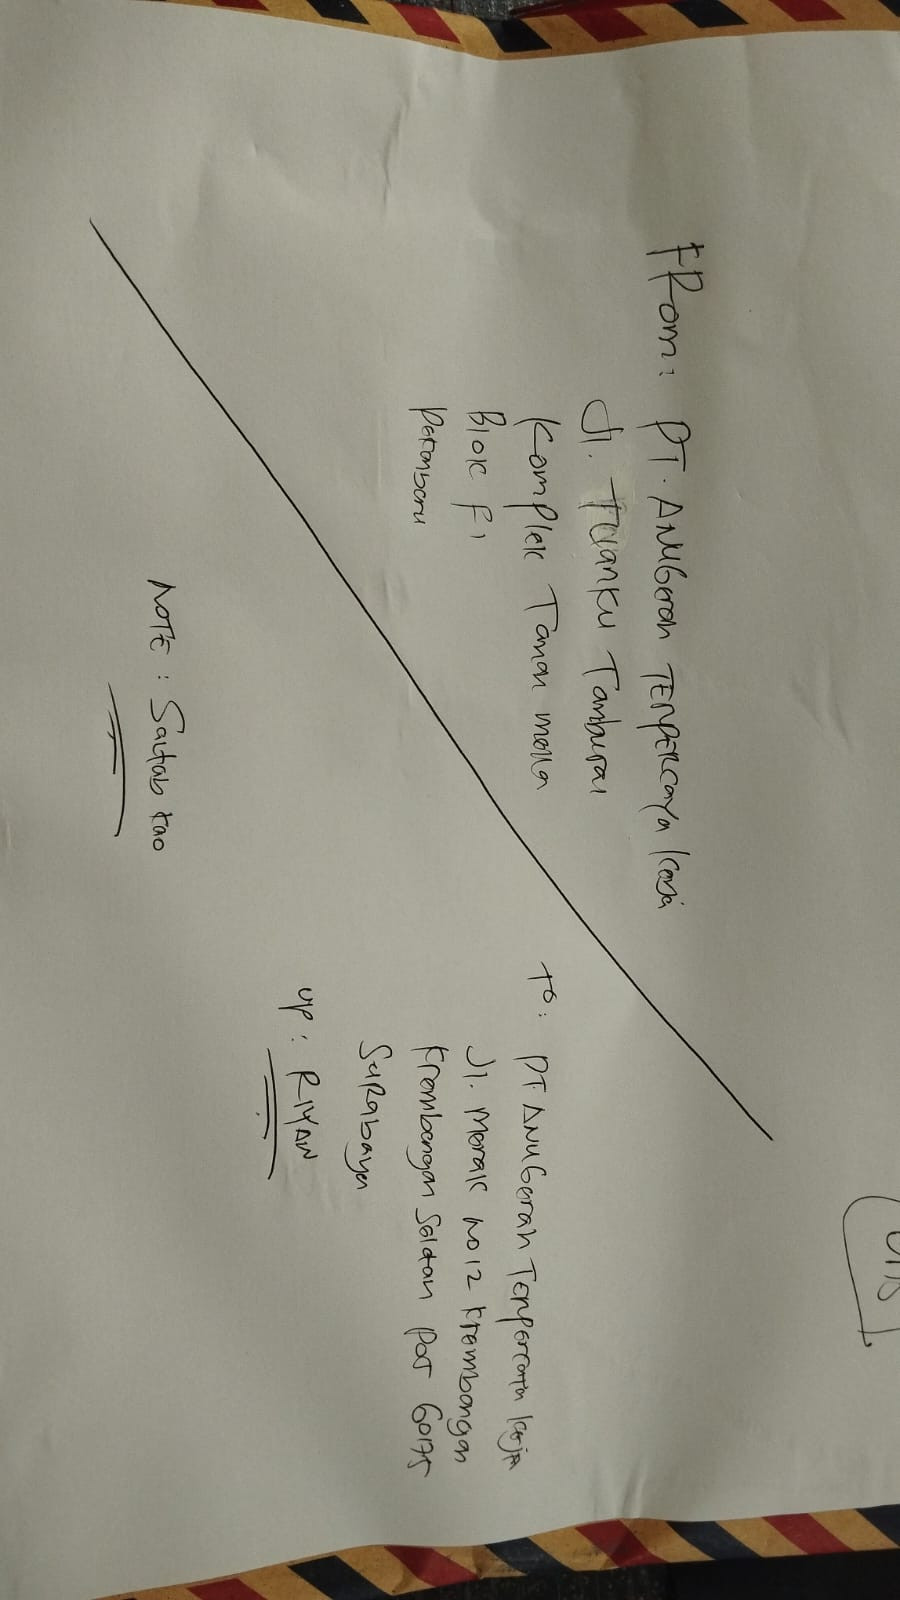 FROM: PT. ANUGerah TERPERCaya Kerja
Jl. TUanku Tambusai
Komplek Taman mella
Blok F1
Pekanbaru
To: PT ANUGerah Terpercaya Kerja
Jl. Merak No 12 Krembangan
Krembangan Selatan Pos 60175
SuRabaya
UP: RIYAN
NOTE: